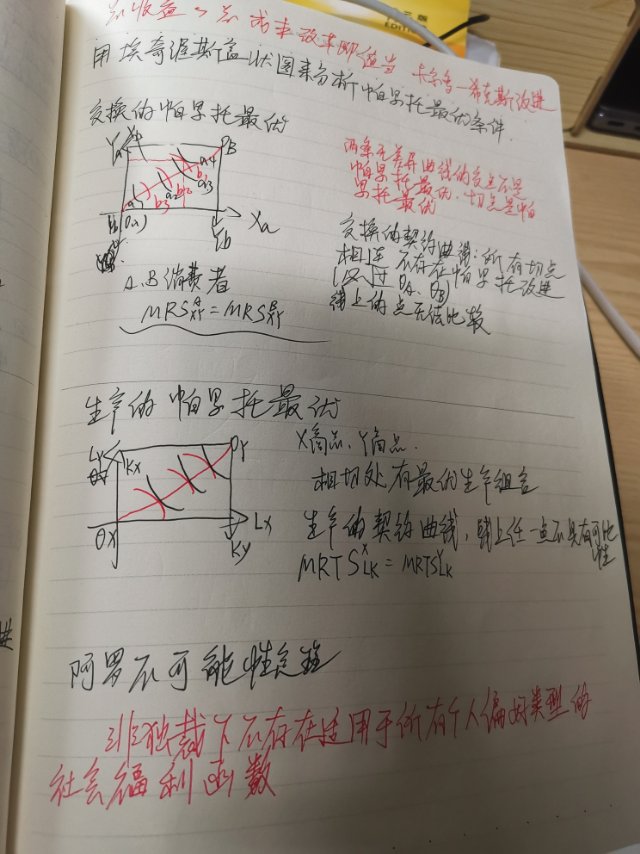 总收益＞总成本改革即适当 卡尔多-希克斯改进
用埃奇渥斯盒状图来分析帕累托最优条件.
交换的帕累托最优
OB
Xa
Yb
两条无差异曲线的交点不是
帕累托最优. 切点是帕
累托最优
交换的契约曲线: 所有切点
相连 不存在帕累托改进
(必过 OA、OB)
线上的点无法比较
A.B 消费者
MRS^A_XY = MRS^B_XY
生产的帕累托最优
LY
KX
OY
OX
LX
KY
X商品、Y商品.
相切处有最优生产组合
生产的契约曲线, 线上任一点不具有可比
性
MRTS^X_LK = MRTS^Y_LK
阿罗不可能性定理
非独裁下不存在适用于所有个人偏好类型的
社会福利函数